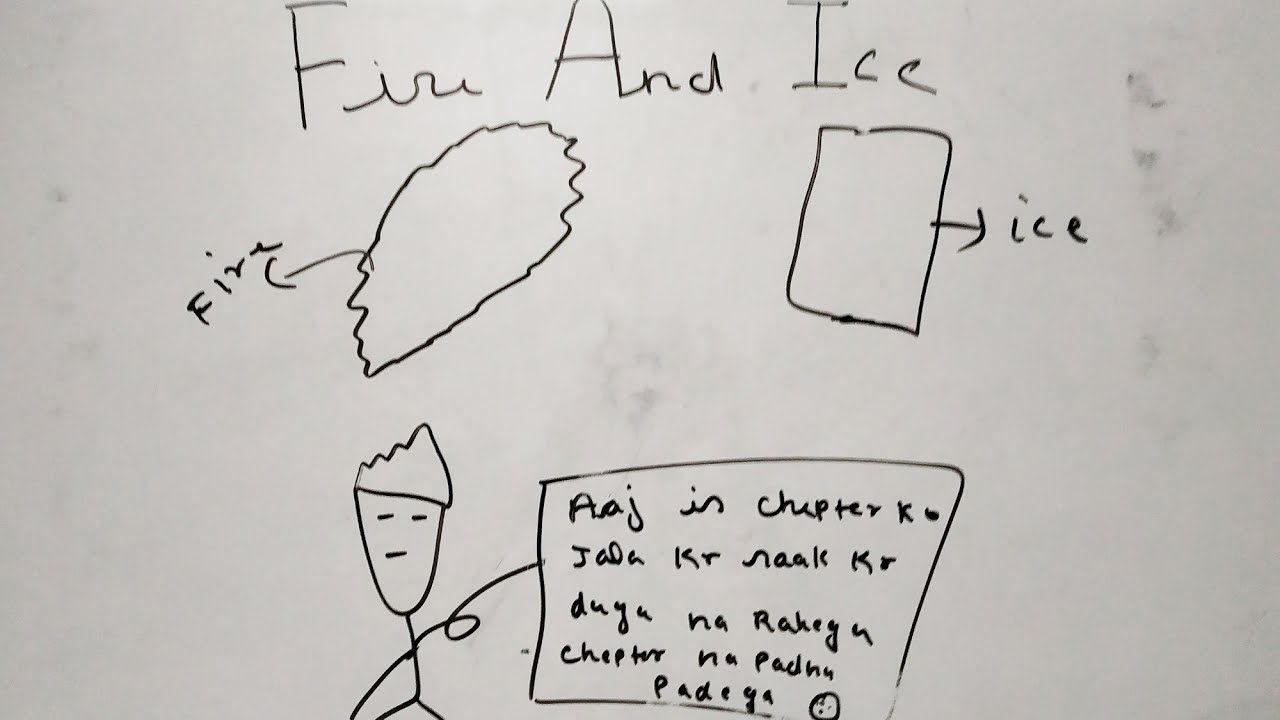 Fire And Ice
Fire
ice
Aaj is chepter ko
Jala kr raak kr
duga na Rahega
chepter na padna
padega